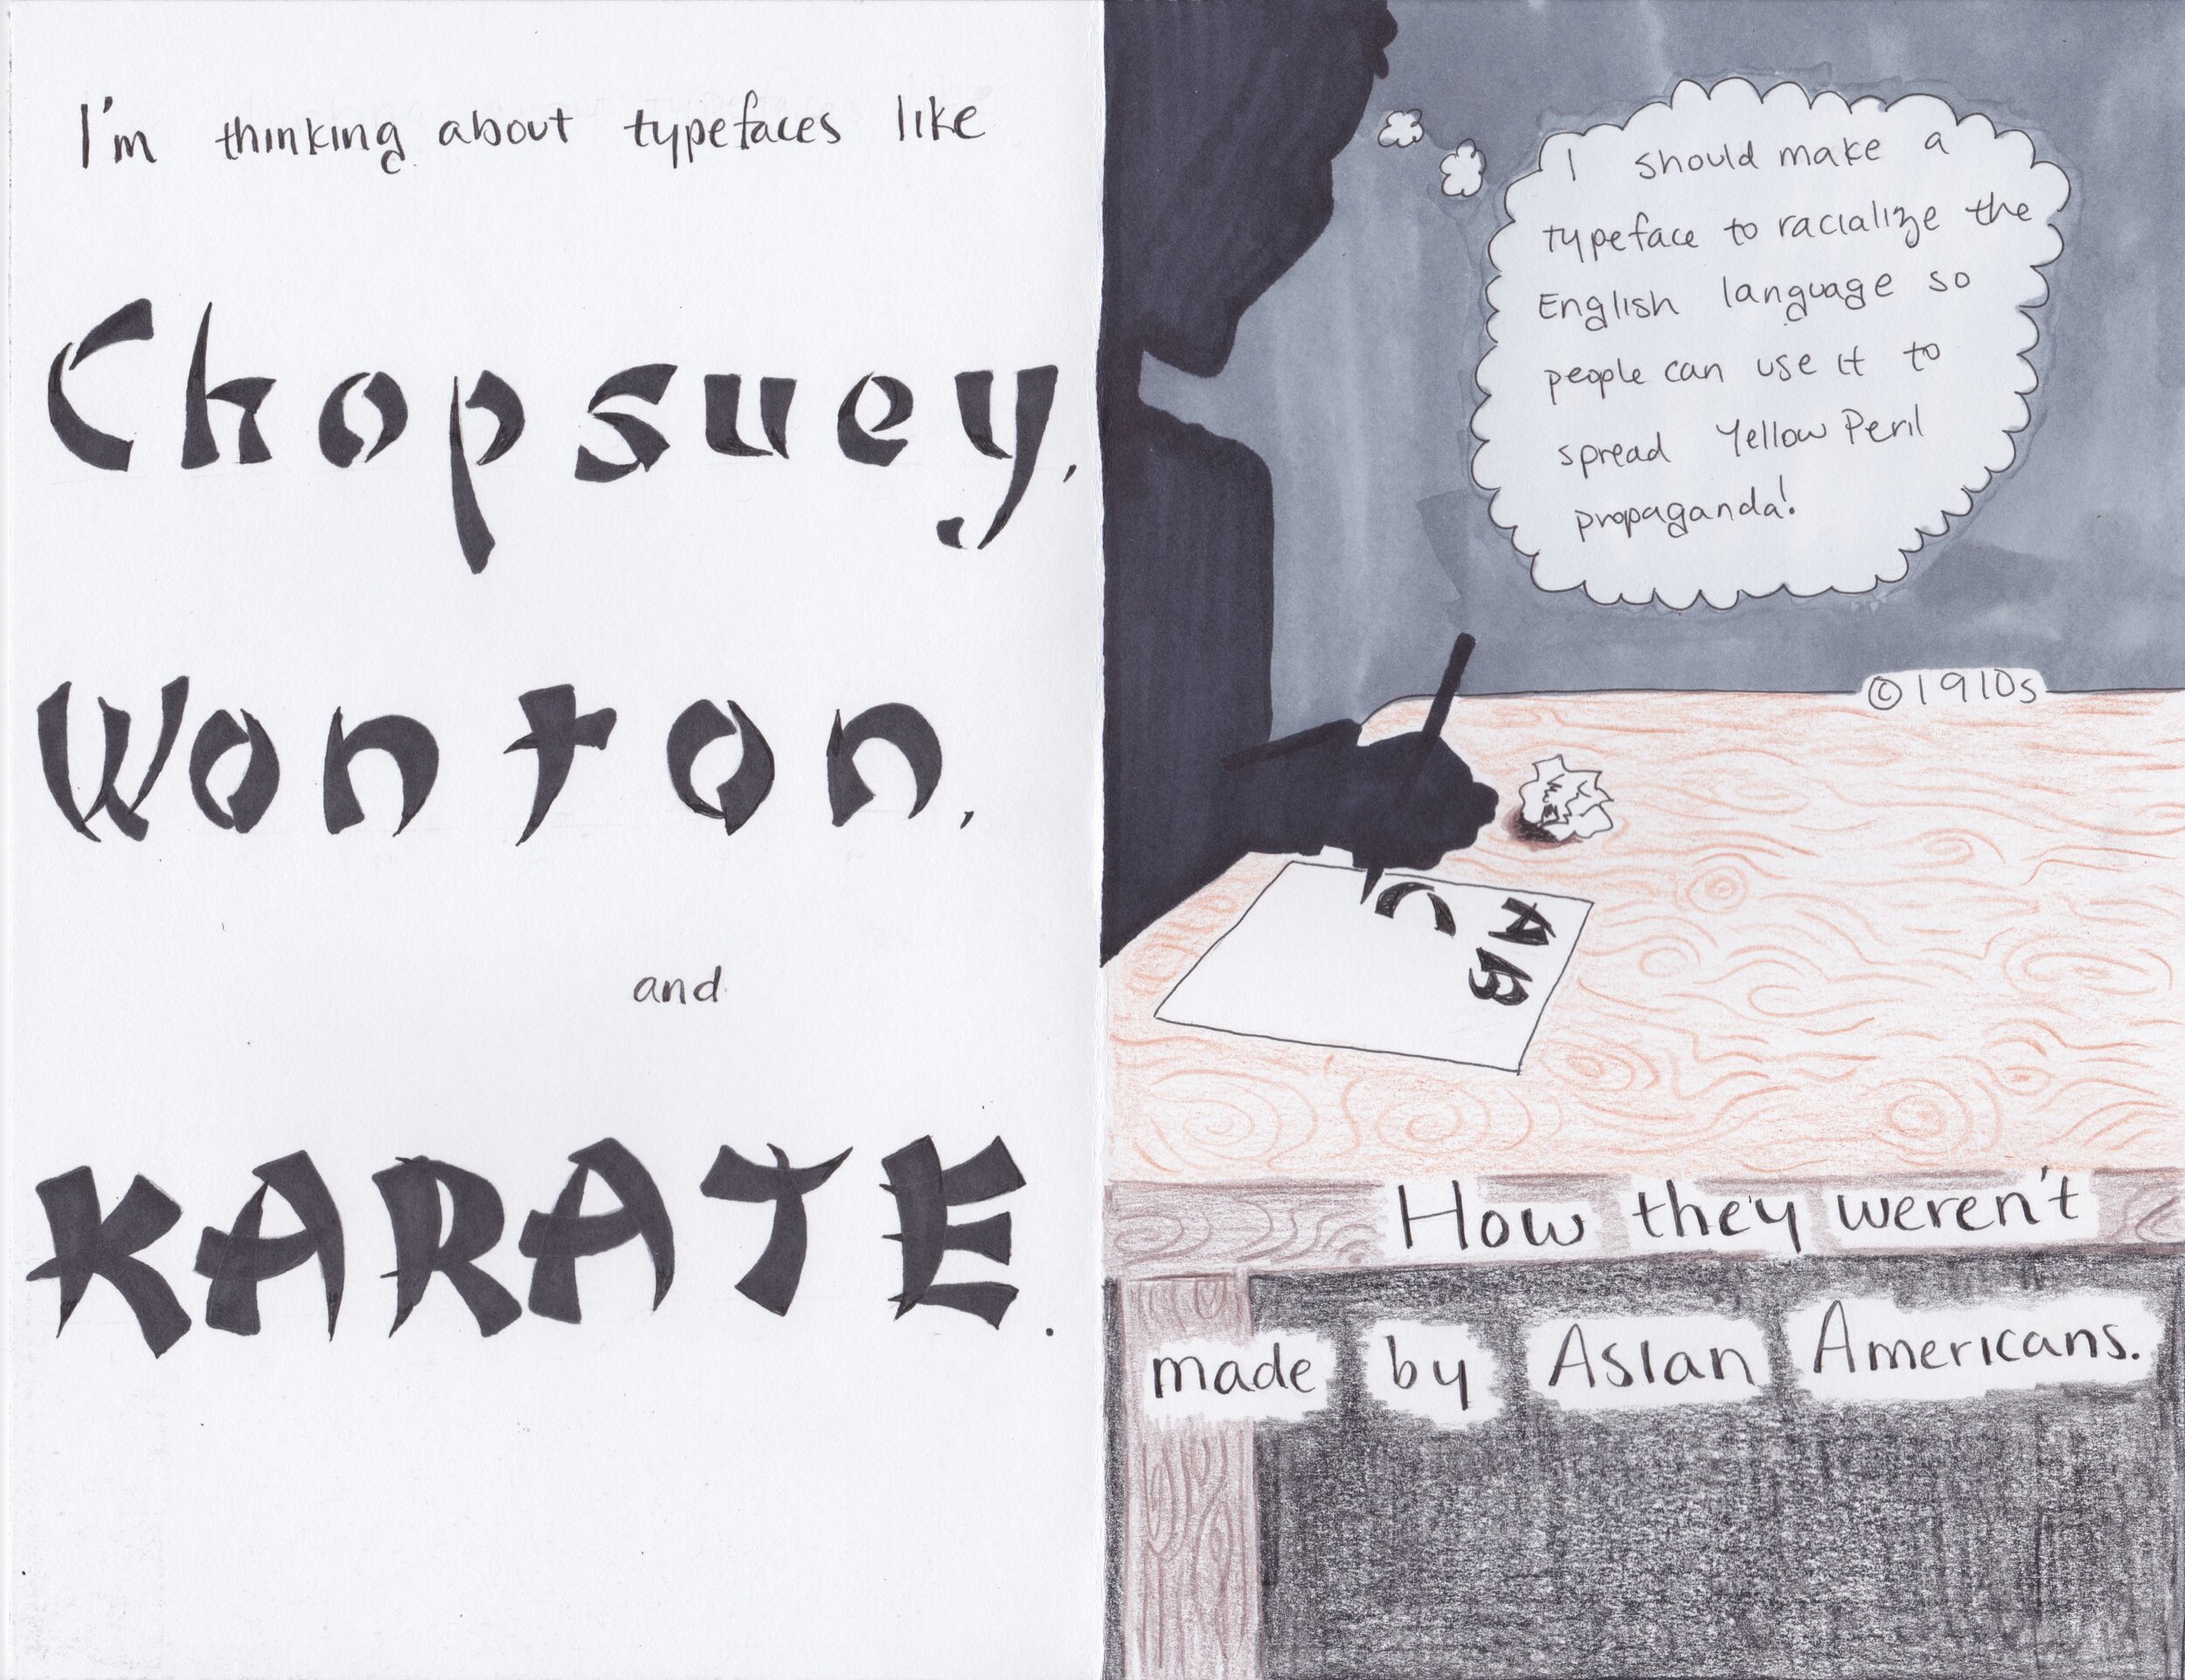 I'm thinking about typefaces like
Chopsuey,
Wonton,
and
KARATE.
I should make a
typeface to racialize the
English language so
people can use it to
spread Yellow Peril
propaganda!
©1910s
A B
C
How they weren't
made by Asian Americans.